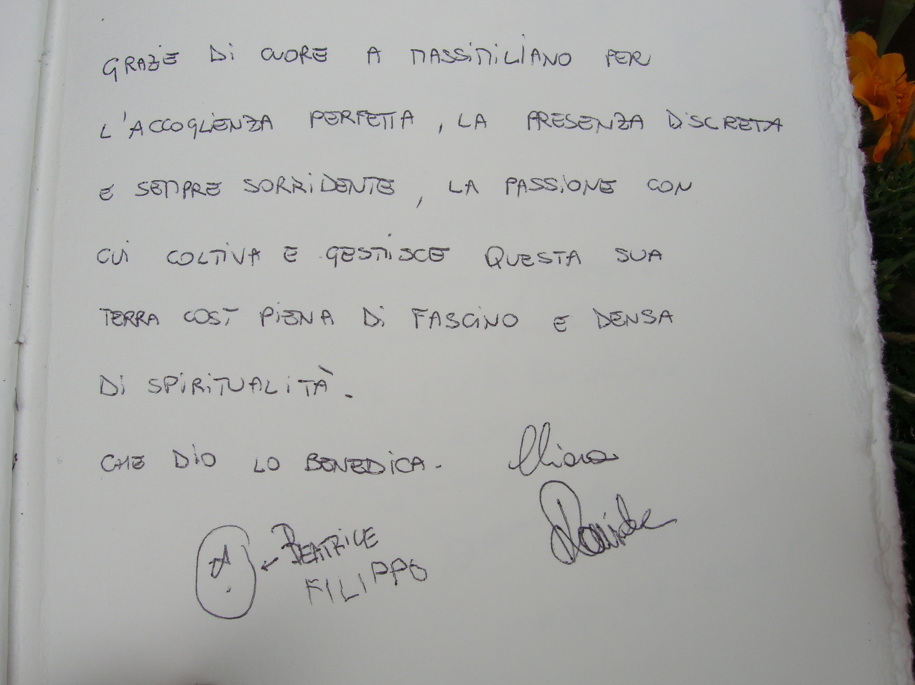 GRAZIE Di CUORE A MASSIMILIANO PER
L'ACCOGLIENZA PERFETTA, LA PRESENZA DiSCRETA
E SEMPRE SORRIDENTE, LA PASSIONE CON
CUi COLTIVA E GESTISCE QUESTA SUA
TERRA COSÌ PIENA Di FASCINO E DENSA
Di SPIRITUALITÀ.
CHE DIO LO BENEDICA. Chiara
Davide
BEATRICE
FILIPPO